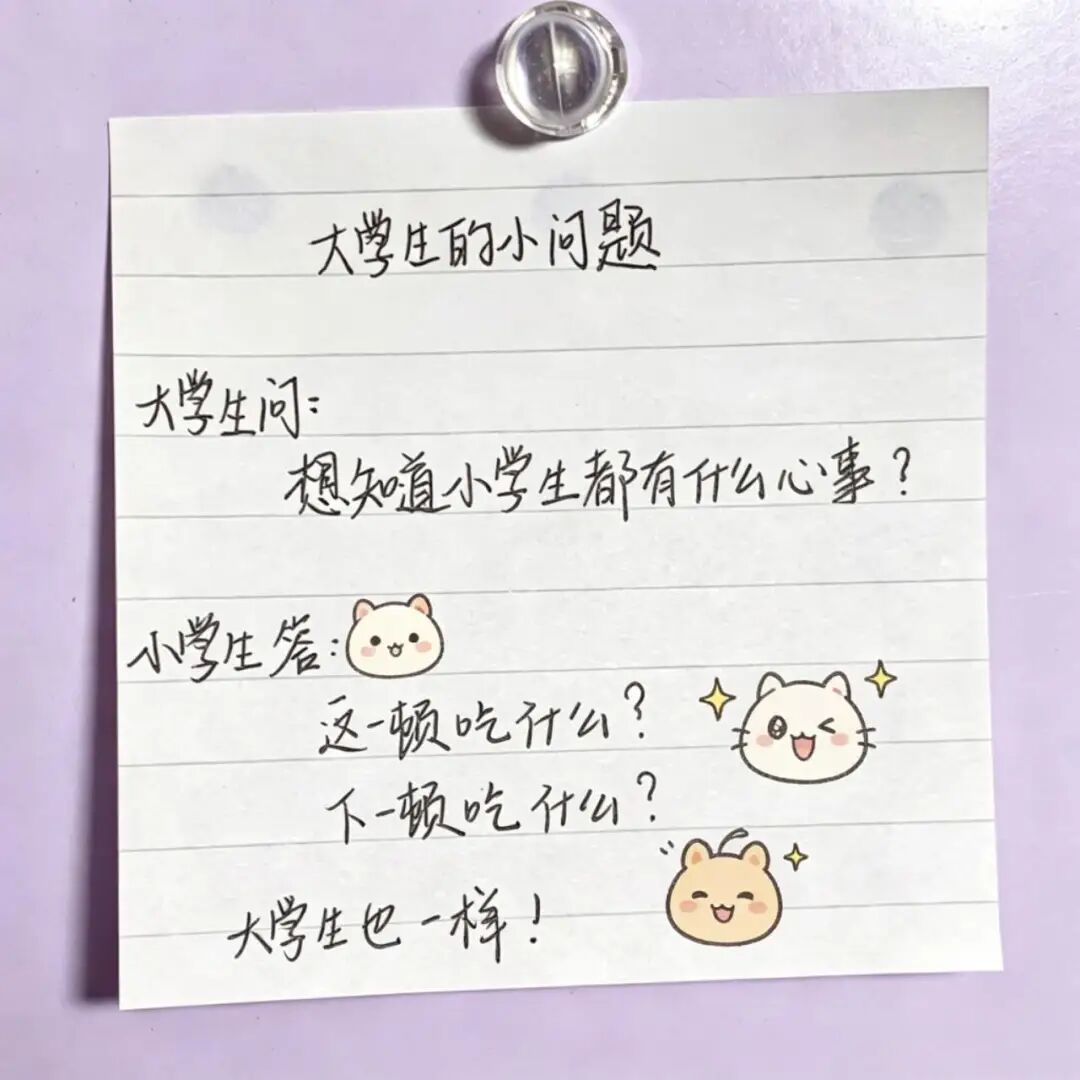 大学生的小问题
大学生问:
想知道小学生都有什么心事?
小学生答:
这一顿吃什么?
下一顿吃什么?
大学生也一样!